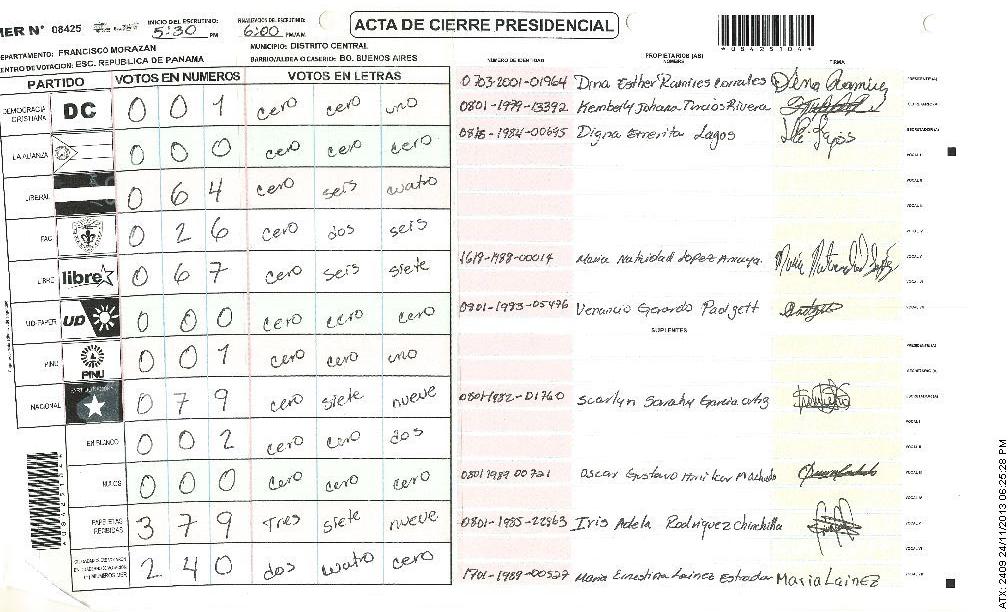 MER Nº 08425 INICIO DEL ESCRUTINIO: 5:30 PM FINALIZACION DEL ESCRUTINIO: 6:00 PM/AM ACTA DE CIERRE PRESIDENCIAL *08425104*
DEPARTAMENTO: FRANCISCO MORAZAN MUNICIPIO: DISTRITO CENTRAL
CENTRO DE VOTACION: ESC. REPUBLICA DE PANAMA BARRIO/ALDEA O CASERIO: BO. BUENOS AIRES
PARTIDO VOTOS EN NUMEROS VOTOS EN LETRAS
DEMOCRACIA CRISTIANA DC 0 0 1 cero cero uno
LA ALIANZA 0 0 0 cero cero cero
LIBERAL 0 6 4 cero seis cuatro
PAC 0 2 6 cero dos seis
LIBRE libre 0 6 7 cero seis siete
UD-FAPER UD 0 0 0 cero cero cero
PINU PINU 0 0 1 cero cero uno
NACIONAL 0 7 9 cero siete nueve
EN BLANCO 0 0 2 cero cero dos
NULOS 0 0 0 cero cero cero
PAPELETAS RECIBIDAS 3 7 9 Tres siete nueve
2 4 0 dos cuatro cero
NUMERO DE IDENTIDAD PROPIETARIOS (AS) NOMBRE FIRMA
0703-2001-01964 Dina Esther Ramires Corrales Dina Ramirez PRESIDENTE(A)
0801-1979-13392 Kemberly Johana Turcios Rivera
-1984-00695 Digna Emerita Lagos SECRETARIO(A)
VOCAL I
VOCAL II
1619-1988-00014 Maria Natividad Lopez Amaya. Maria Natividad Lopez
0801-1993-05496 Venancio Gerardo Padgett
SUPLENTES
PRESIDENTE(A)
SECRETARIO(A)
0801-1982-01760 Scarlyn Sarahy Garcia
VOCAL I
0801 1989 00721 Oscar Gustavo Machado
0801-1985-22963 Iris Adela Rodriguez Chinchilla
1701-1989-00527 Maria Ernestina Lainez Estrada Maria Lainez
ATX: 2409 24/11/2013 06:25:28 PM